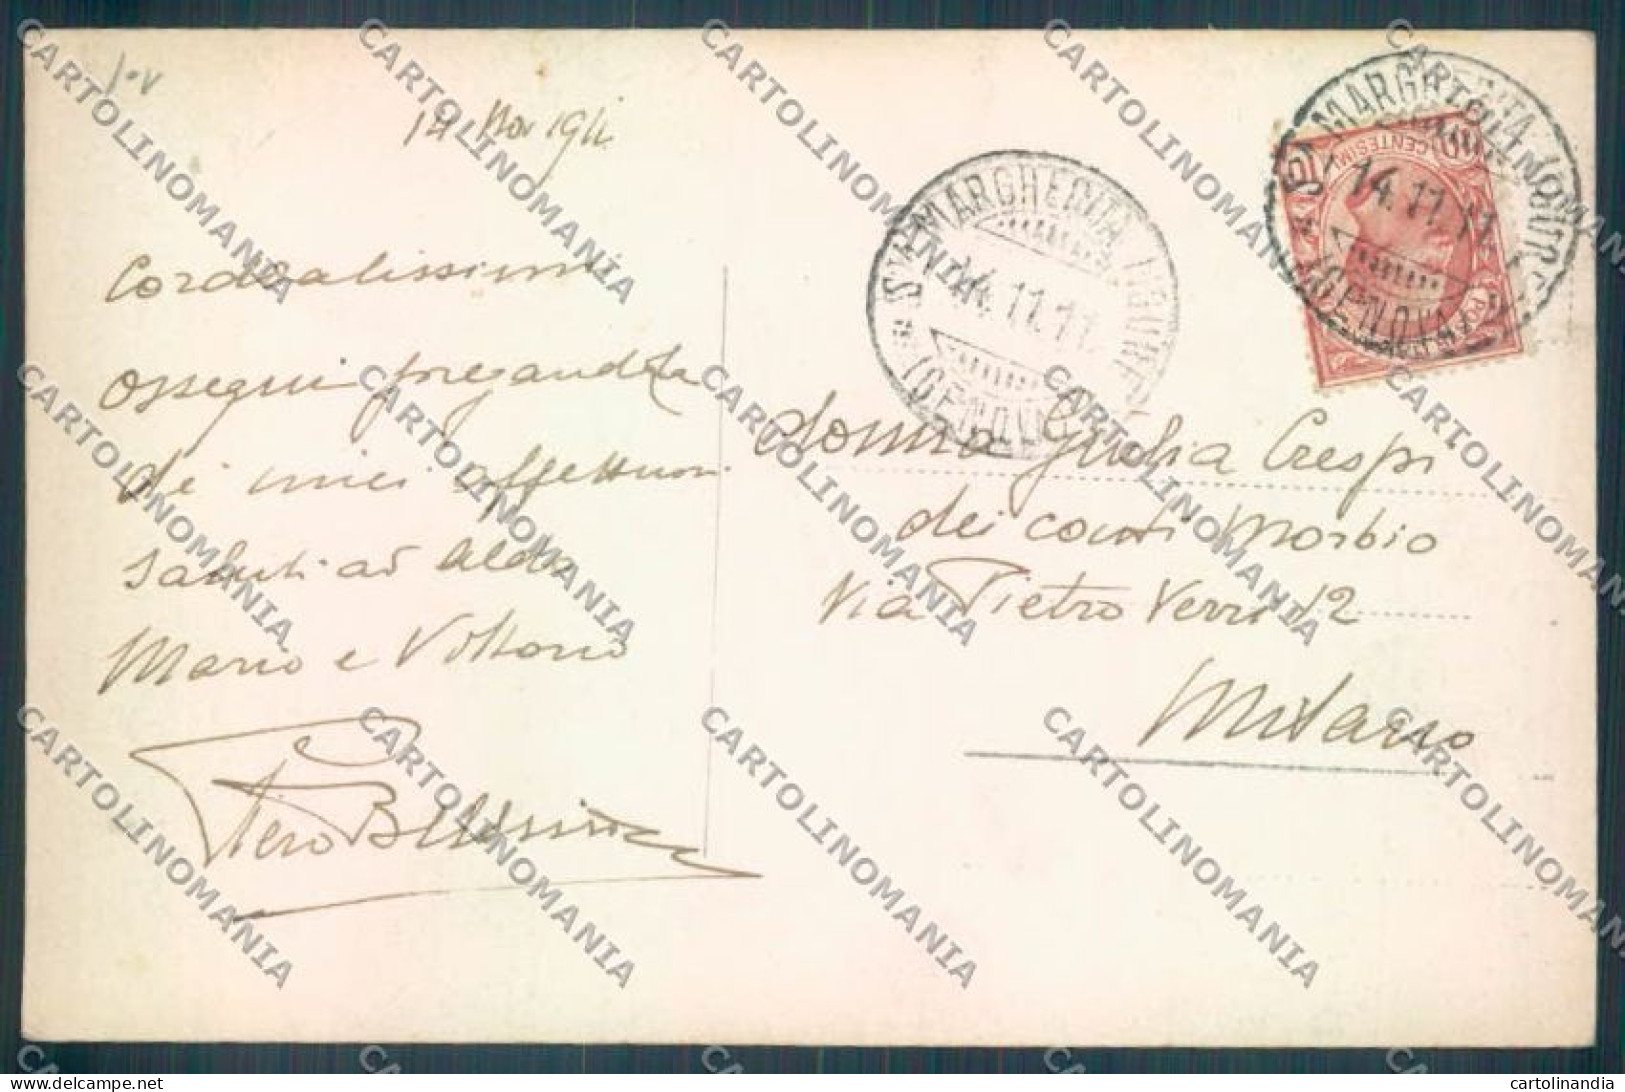 14 Nov 1911
Cordialissimi
ossequi pregandola
dei miei affettuosi
saluti ad Alda
Mario e Vittorio
Piero
S. MARGHERITA LIGURE
14.11.11
(GENOVA)
S. MARGHERITA LIGURE
14.11.11
(GENOVA)
10
CENTESIMI
Donna Giulia Crespi
dei conti Morbio
Via Pietro Verri 12
Milano
CARTOLINOMANIA
delcampe.net
cartolinandia